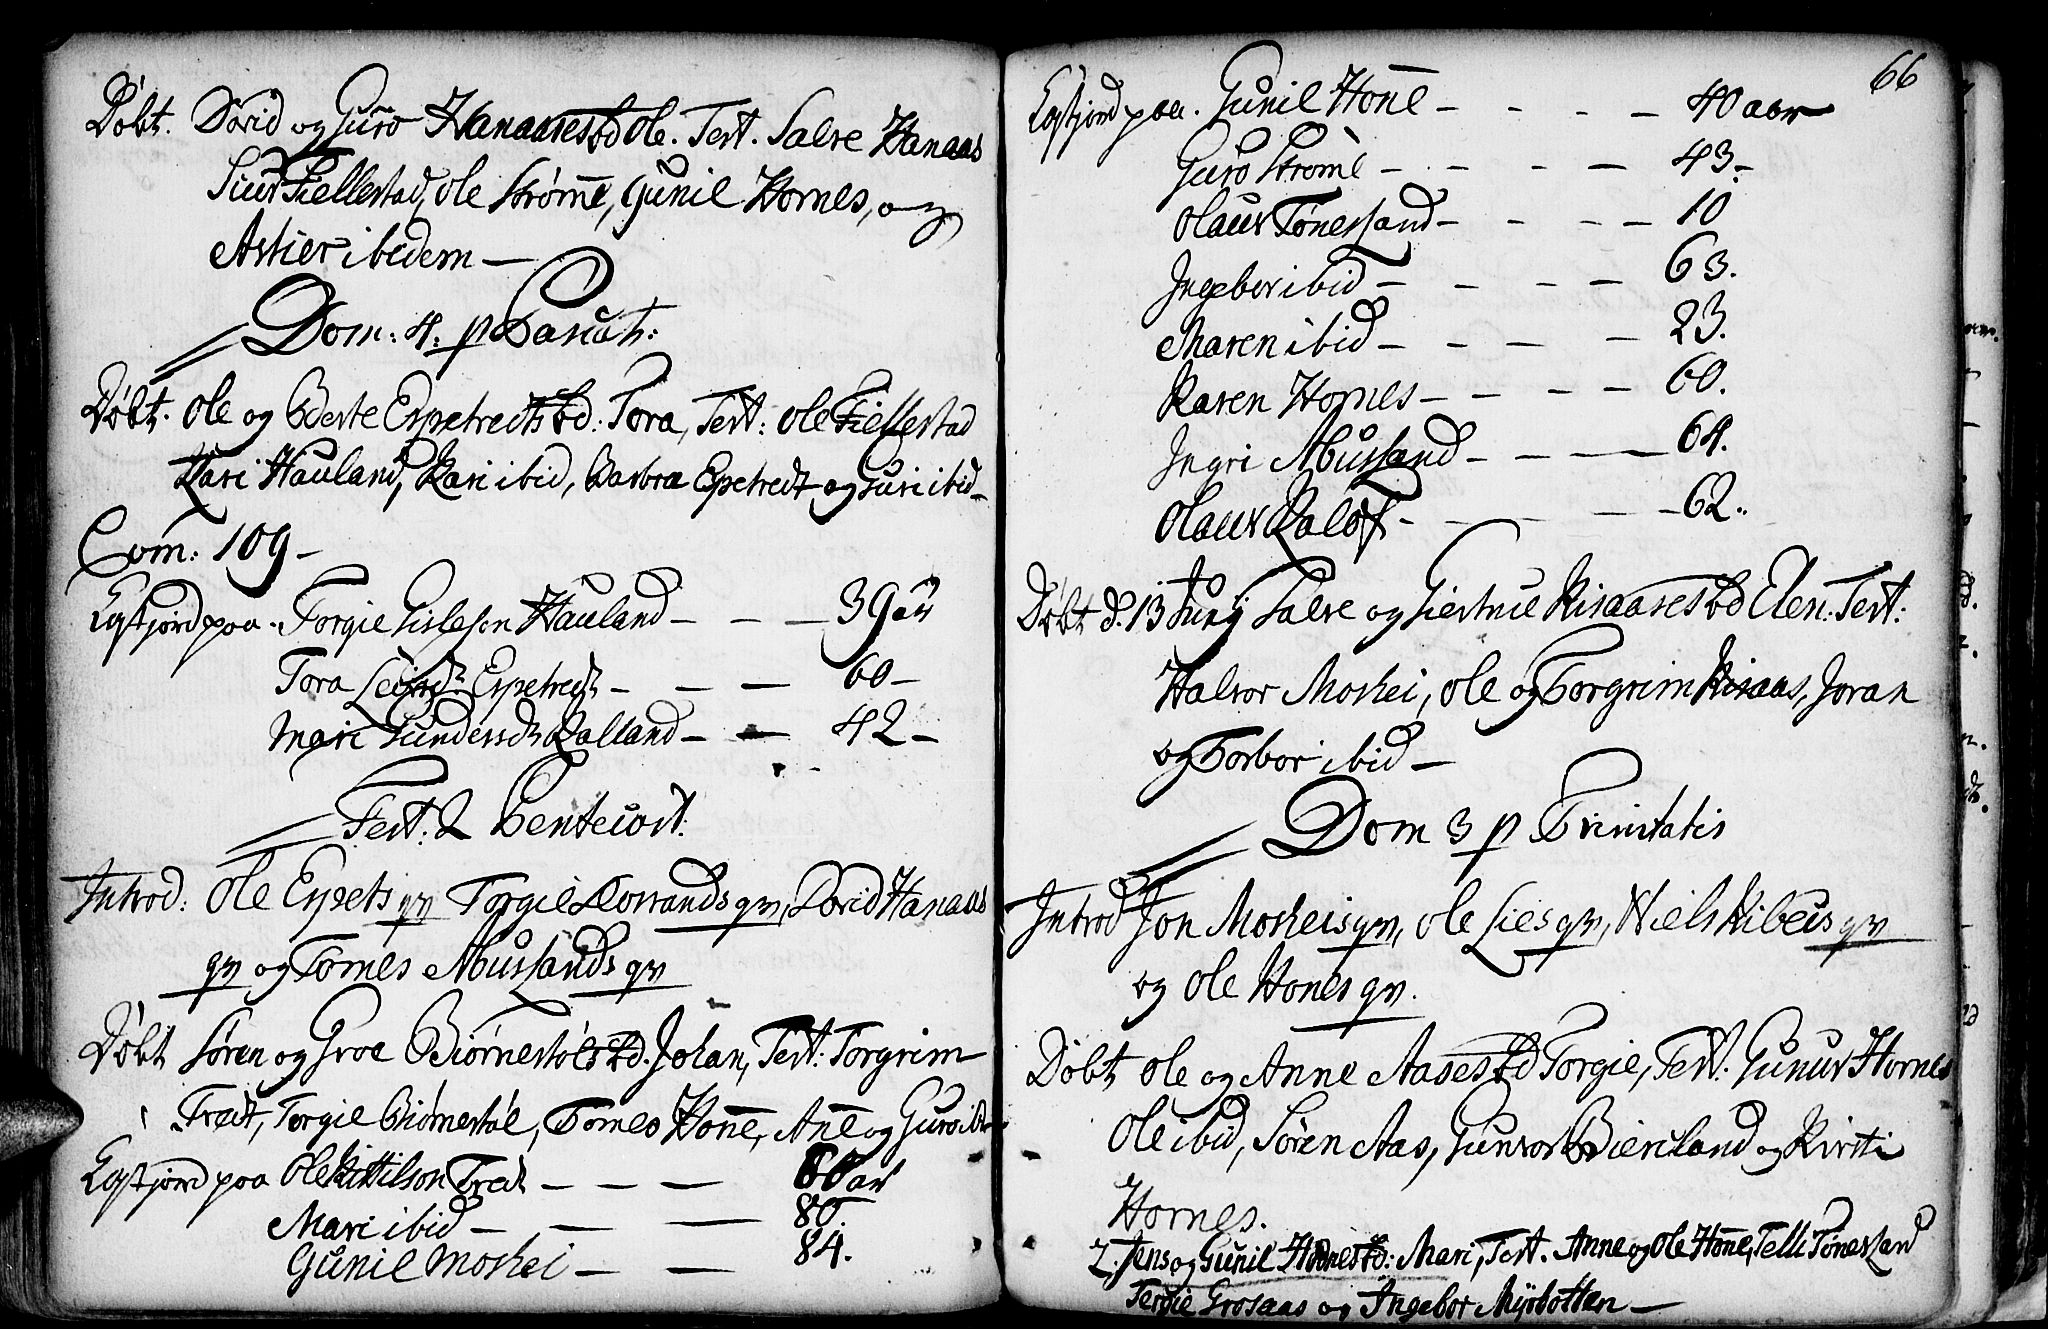 Døbt. David og Guro Hanaases bd Ole. Test. Salve Hanaas
Siur Fiellestad, Ole Strømme, Gunil Hornes, og
Astier ibidem —
Dom: 4. p Pascat:
Døbt. Ole og Berte Espetredts bd: Tora, Test: Ole Fiellestad
Kari Hauland, Kari ibid, Barbra Espetredt og Guri ibid —
Com: 109 —
Egstjord paa. Torgie Gislesøn Hauland — — — 39 aar
Tora Espetredt — — — 60 —
Mari Gundersdt Kalland — — 42 —
Fest: 2 Pentecost:
Introd: Ole Espets qv Torgie Dovlands qv, David Hanaas
qv og Tomes Musland's qv
Døbt Søren og Groe Biørnestøls bd. Johan, Test: Torgrim
Tredt, Torgie Biørnestøl, Tomes Hone, Ane og Guro ibd
Egstjord paa Ole Kittilson Tredt — — — 60 aar
Mari ibid — — — 80.
Gunil Moshei — — 84.
66
Egstjord paa. Gunil Hone — — — — 40 aar
Guro Strome — — — — 43. —
Olaur Tønessand — — — — 10
Ingebor ibid — — — — 63.
Maren ibid — — — — 23.
Karen Hornes — — — — 60.
Ingri Musland — — — 64.
Olaur Kaløs — — — — 62..
Døbt d. 13 Junj Salve og Giertrue Risaases bd Elen: Test:
Halvor Moshei, Ole og Torgrim Risaas, Joran
og Torbor ibid —
Dom 3 p Trinitatis
Introd Jon Mosheis qv, Ole Lies qv, Niels Kibeus qv
og Ole Hones qv.
Døbt Ole og Anne Aases bd Torgie, Test: Gunur Hornes
Ole ibid, Søren Aas, Gunvor Bieriland og Kirsti
Hornes.
2. Jens og Gunil Hones bd: Mari, Test. Anne og Ole Hone, Telli Tønessand
Tergie Grosaas og Ingebor Myrbotten —